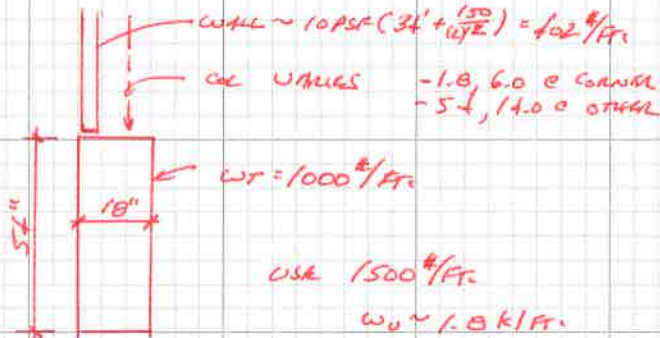 WALL ~ 10 PSF (34' + 150/(12)2) = 402 #/FT.
COL VARIES -1.8, 6.0 @ CORNER
-5.4, 14.0 @ OTHER
WT = 1000 #/FT.
18"
54"
USE 1500 #/FT.
Wu ~ 1.8 K/FT.